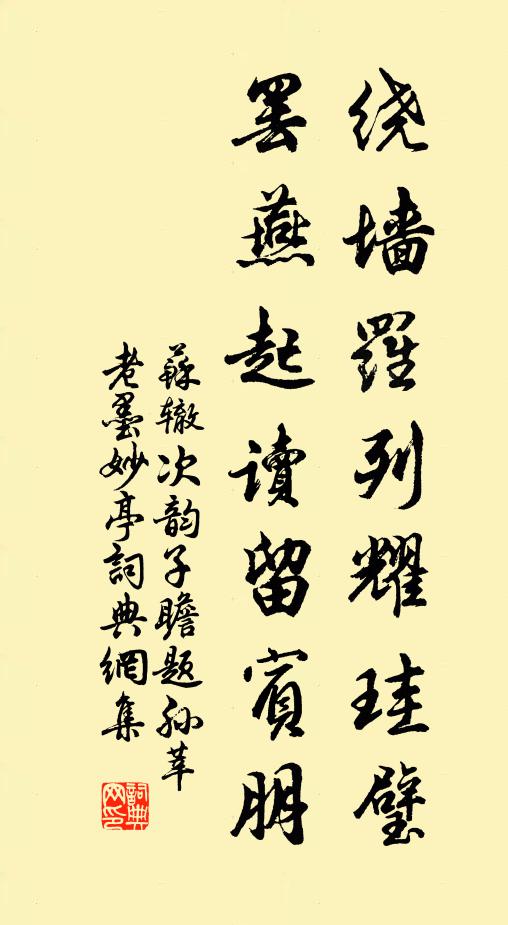 绕墙羅列耀珪璧
罢燕起读留賓朋
蘇辙次韵子瞻题孙莘
老墨妙亭詞典網集
詞典网印